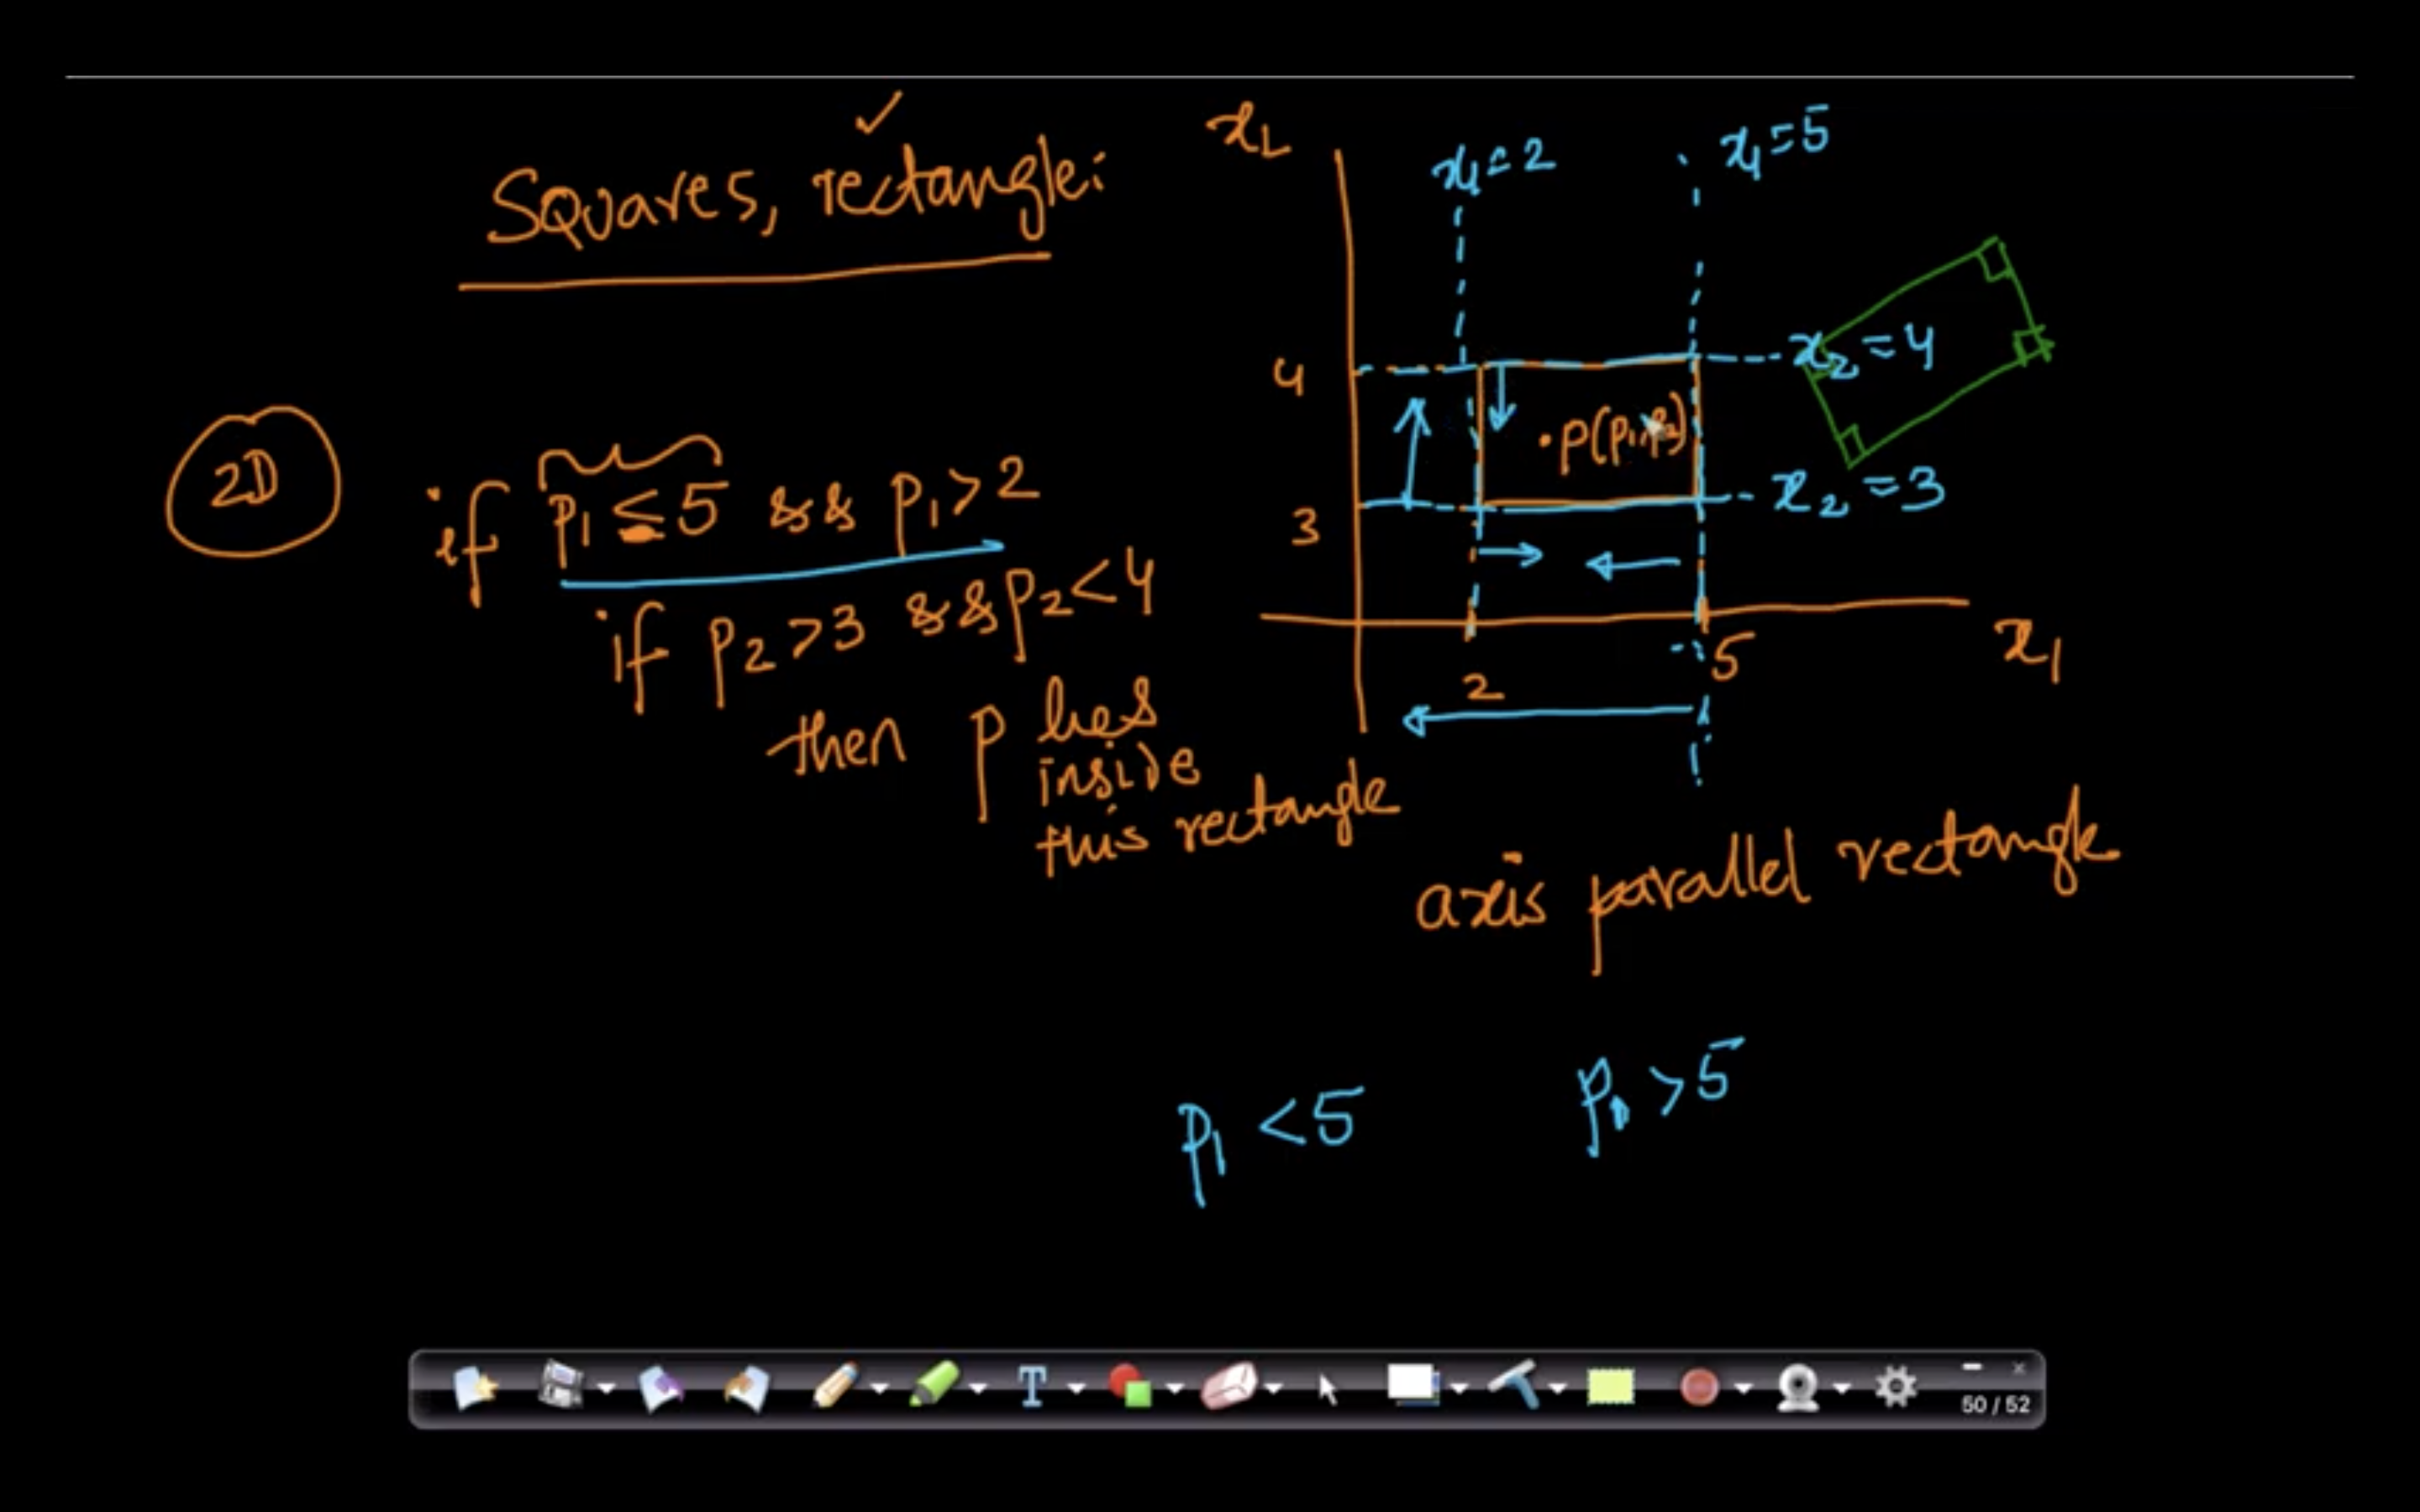 Squares, rectangle:
2D
if p₁ ≤ 5 && p₁ > 2
if p₂ > 3 && p₂ < 4
then p lies
inside
this rectangle
x₂
x₁ = 2
x₁ = 5
4
x₂ = 4
.p(p₁,p₂)
3
x₂ = 3
2
5
x₁
axis parallel rectangle
p₁ < 5
p₁ > 5
T
50 / 52